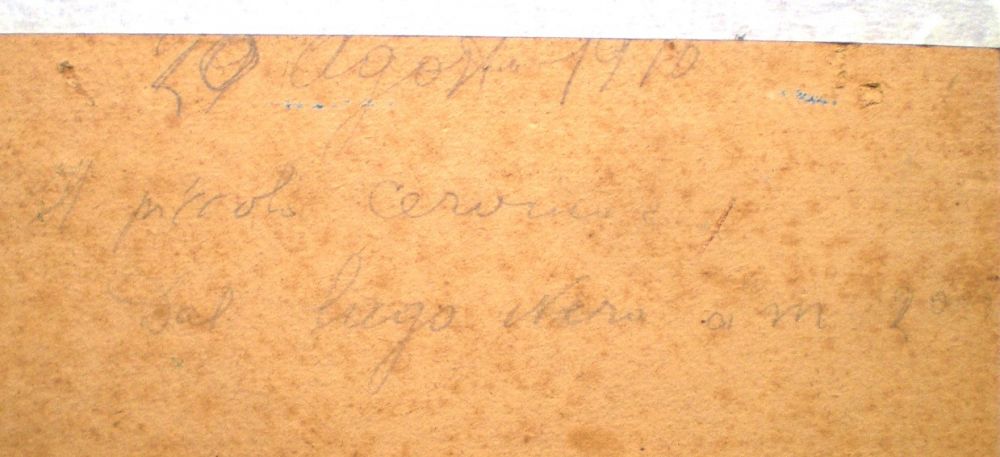 29 Agosto 1910
Il piccolo Cervino
Dal Lago Nero a m